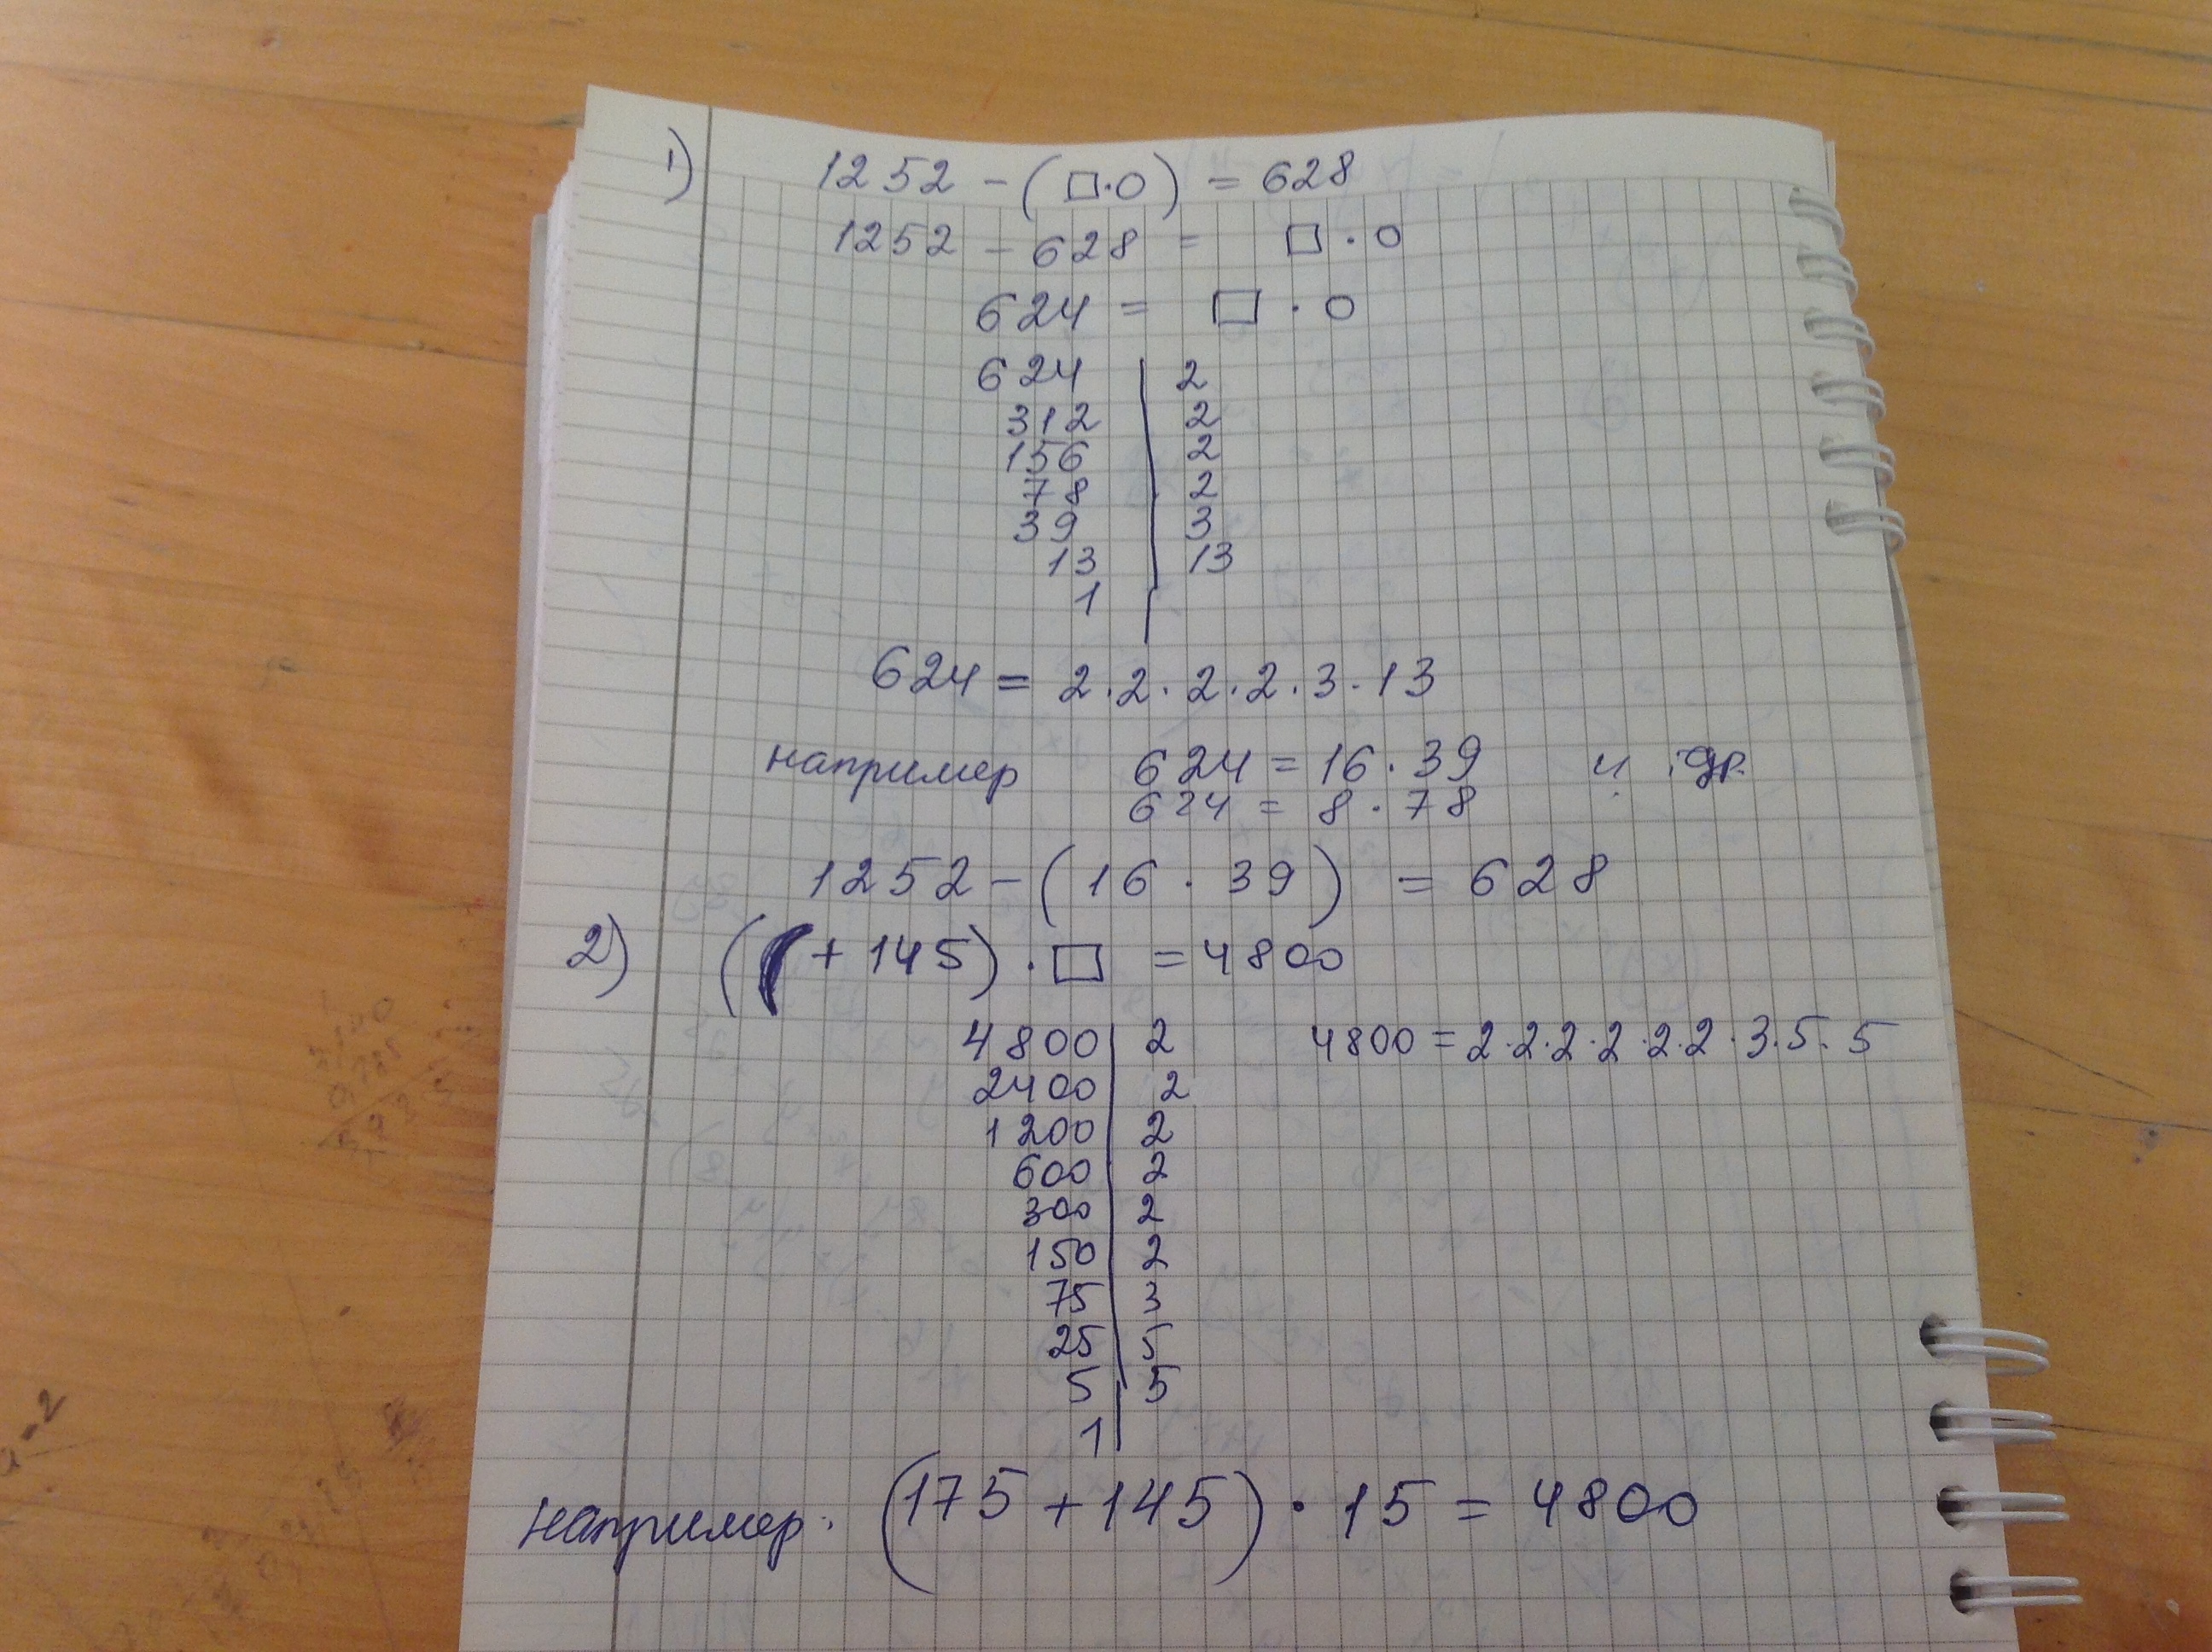 1) 1252 - (□·○) = 628
1252 - 628 = □·○
624 = □·○
624 | 2
312 | 2
156 | 2
78 | 2
39 | 3
13 | 13
1 |
624 = 2·2·2·2·3·13
например 624 = 16·39 и др.
624 = 8·78
1252 - (16·39) = 628
2) ( + 145)·□ = 4800
4800 | 2 4800 = 2·2·2·2·2·2·3·5·5
2400 | 2
1200 | 2
600 | 2
300 | 2
150 | 2
75 | 3
25 | 5
5 | 5
1 |
например. (175 + 145)·15 = 4800